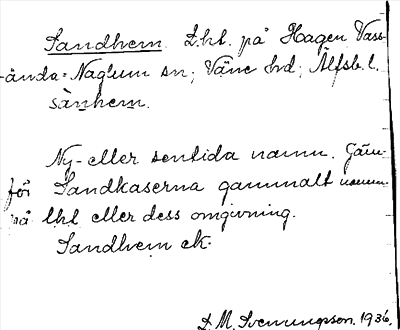 Sandhem. L.hl. på Hagen Vass-
ända-Naglum sn; Väne hd; Älfsb. l.
sànhem.
Ny- eller sentida namn. Jäm-
för Sandkaserna gammalt namn
på lhl eller dess omgivning.
Sandhem ek.
D. M. Svenungson. 1936.